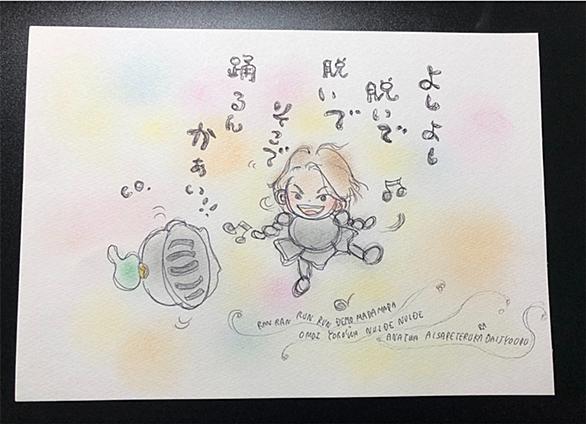 よしよし
脱いで
脱いで
そこで
踊るん
かぁい!!
RAN RAN RUN RUN DEMO MADAMADA
OMOI YOROIWA NUIDE NUIDE
ANATWA AISARETERUKARA DAIJYOOBU